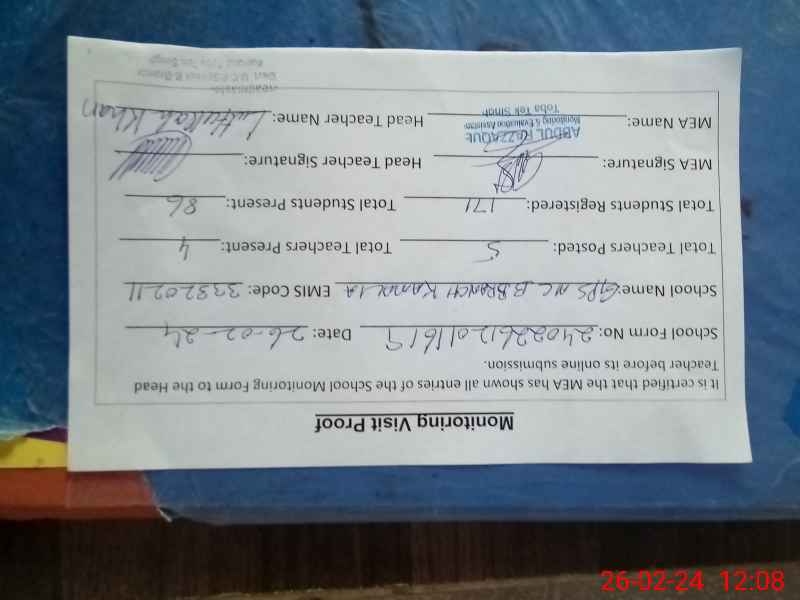 Monitoring Visit Proof
It is certified that the MEA has shown all entries of the School Monitoring Form to the Head
Teacher before its online submission.
School Form No: 24022612011619 Date: 26-02-24
School Name: GPS MC B.BRANCH KAMALIA EMIS Code: 33320211
Total Teachers Posted: 5 Total Teachers Present: 4
Total Students Registered: 171 Total Students Present: 86
MEA Signature: Head Teacher Signature:
MEA Name: Head Teacher Name: Lutfullah Khan
ABDUL RAZZAQUE
Monitoring & Evaluation Assistant
Toba Tek Singh
26-02-24 12:08